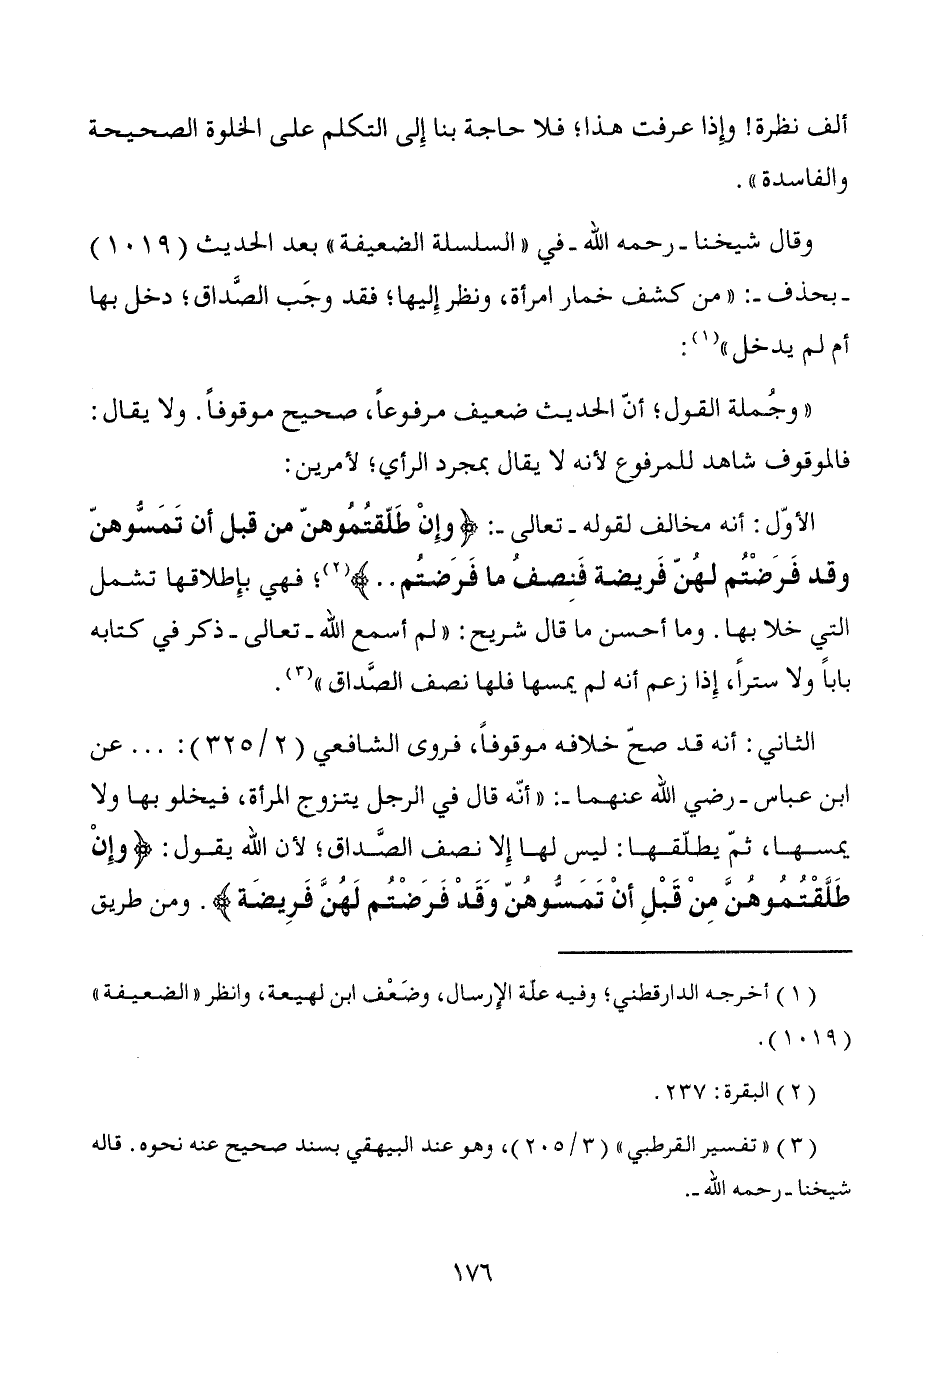 ألف نظرة! وإذا عرفت هذا؛ فلا حاجة بنا إلى التكلم على الخلوة الصحيحة
والفاسدة».
وقال شيخنا ـ رحمه الله ـ في «السلسلة الضعيفة» بعد الحديث (١٠١٩)
ـ بحذف ـ: «من كشف خمار امرأة، ونظر إليها؛ فقد وجَب الصَّداق؛ دخل بها
أم لم يدخل»(١):
«وجُملة القول؛ أنّ الحديث ضعيف مرفوعاً، صحيح موقوفاً. ولا يقال:
فالموقوف شاهد للمرفوع لأنه لا يقال بمجرد الرأي؛ لأمرين:
الأوّل: أنه مخالف لقوله ـ تعالى ـ: ﴿وإنْ طَلّقتُمُوهنّ من قبل أن تَمَسُّوهنّ
وقد فَرَضْتُم لهُنّ فَريضة فَنِصفُ ما فَرَضتُم..﴾(٢)؛ فهي بإطلاقها تشمل
التي خلا بها. وما أحسن ما قال شريح: «لم أسمع الله ـ تعالى ـ ذكر في كتابه
باباً ولا ستراً، إذا زعم أنه لم يمسها فلها نصف الصَّداق»(٣).
الثاني: أنه قد صحّ خلافه موقوفاً، فروى الشافعي (٢/ ٣٢٥): ... عن
ابن عباس ـ رضي الله عنهما ـ: «أنّه قال في الرجل يتزوج المرأة، فيخلو بها ولا
يمسها، ثمّ يطلّقها: ليس لها إلا نصف الصَّداق؛ لأن الله يقول: ﴿وإنْ
طَلَّقْتُمُوهُنَّ مِنْ قَبْلِ أنْ تَمَسُّوهُنّ وَقَدْ فَرَضْتُم لَهُنَّ فَرِيضَة﴾. ومن طريق
(١) أخرجه الدارقطني؛ وفيه علّة الإرسال، وضَعْف ابن لهيعة، وانظر «الضعيفة»
(١٠١٩).
(٢) البقرة: ٢٣٧.
(٣) «تفسير القرطبي» (٣/ ٢٠٥)، وهو عند البيهقي بسند صحيح عنه نحوه. قاله
شيخنا ـ رحمه الله ـ.
١٧٦